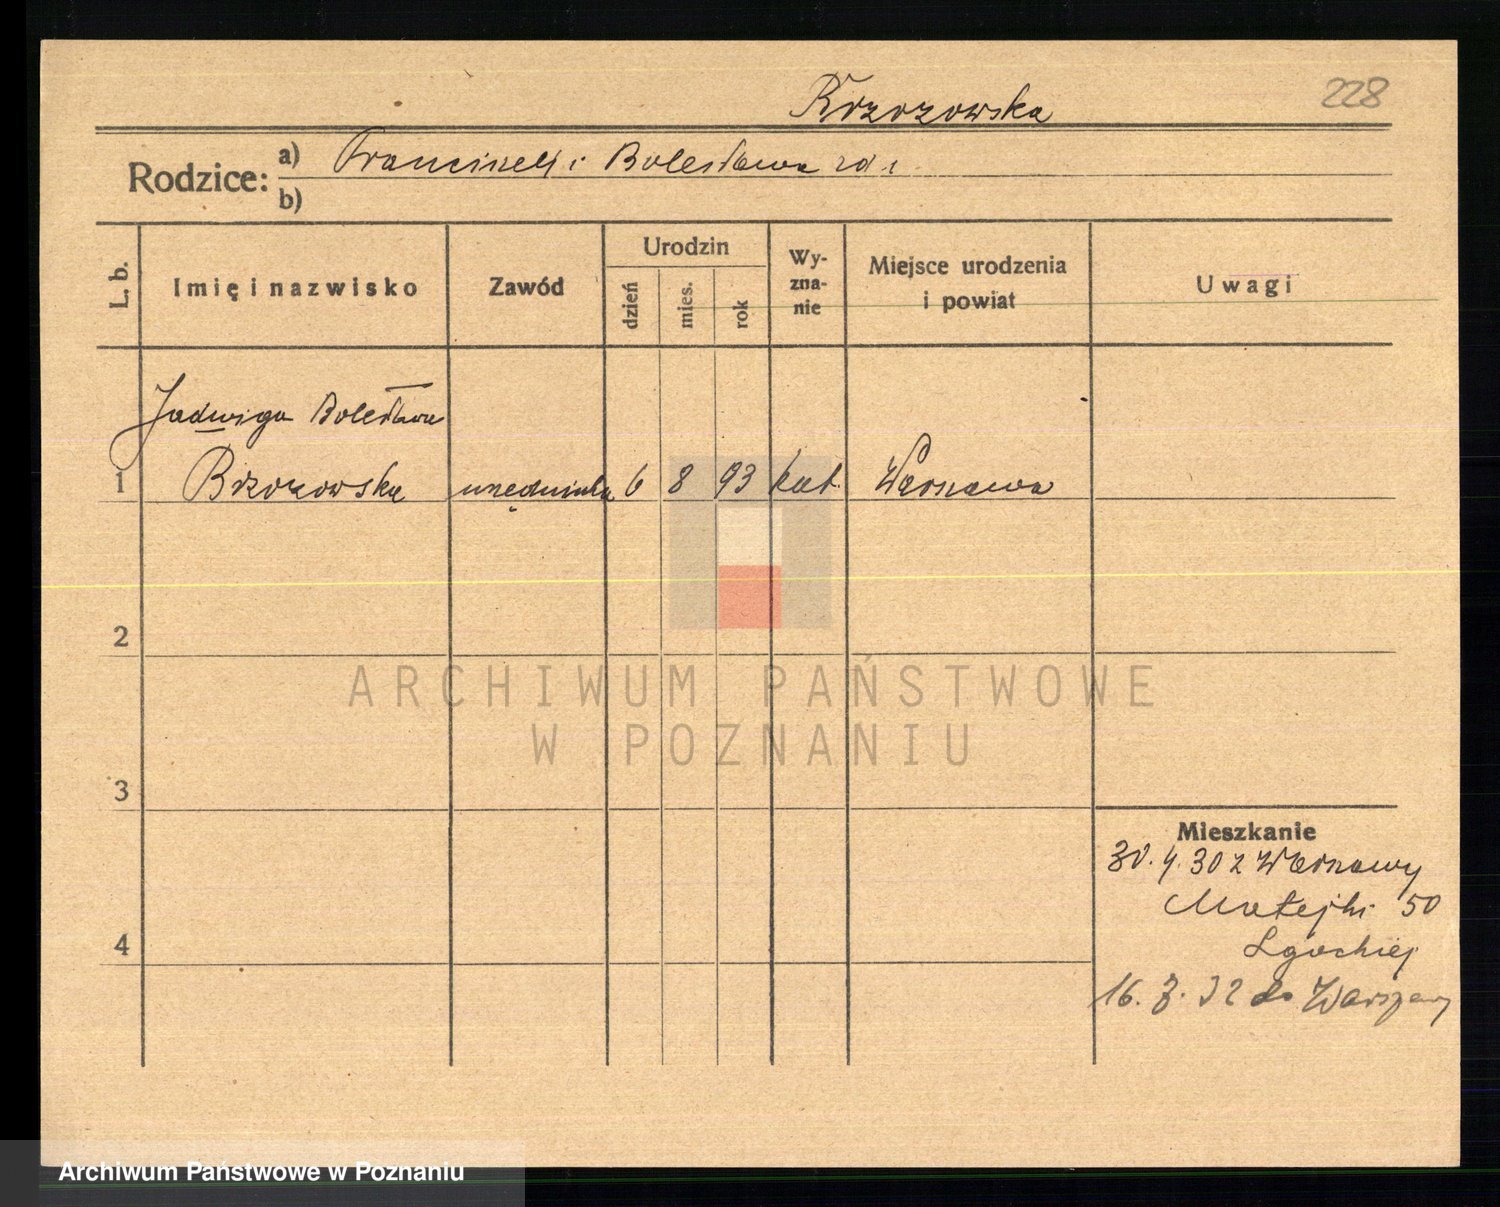 Brzozowska 228
Rodzice: a) Franciszek i Bolesława zd.
b)
L. b. Imię i nazwisko Zawód Urodzin dzień mies. rok Wy-zna-nie Miejsce urodzenia i powiat Uwagi
Jadwiga Bolesława
1 Brzozowska urzędniczka 6 8 93 kat. Warszawa
2
ARCHIWUM PAŃSTWOWE
W POZNANIU
3
Mieszkanie
30. 4. 30 z Warszawy
Matejki 50
4
16. 7. 32 do Warszawy
Archiwum Państwowe w Poznaniu